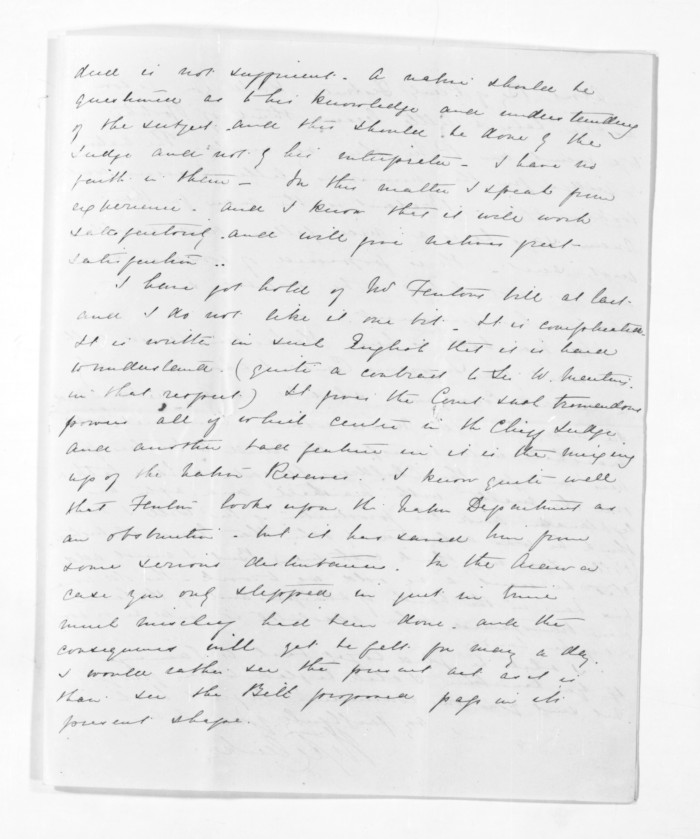 deed is not sufficient. A native should be
questioned as to his knowledge and understanding
of the subject and this should be done by the
Judge and not by his interpreter - I have no
faith in them - In this matter I speak from
experience. and I know that it will work
satisfactorily. and will give natives great
satisfaction ..
I have got hold of Mr Fenton's bill at last
and I do not like it one bit - It is complicated
It is written in such English that it is hard
to understand. (quite a contrast to Sir W. Martin's
in that respect) It gives the Court such tremendous
powers all of which centre in the Chief Judge
and another bad feature in it is the mixing
up of the Native Reserves. I know quite well
that Fenton looks upon the Native Department as
an obstruction - but it has saved him from
some serious disturbances. In the Arawa
case you only stepped in just in time
much mischief had been done. and the
consequences will yet be felt for many a day.
I would rather see the present act as it is
than see the Bill proposed pass in its
present shape.